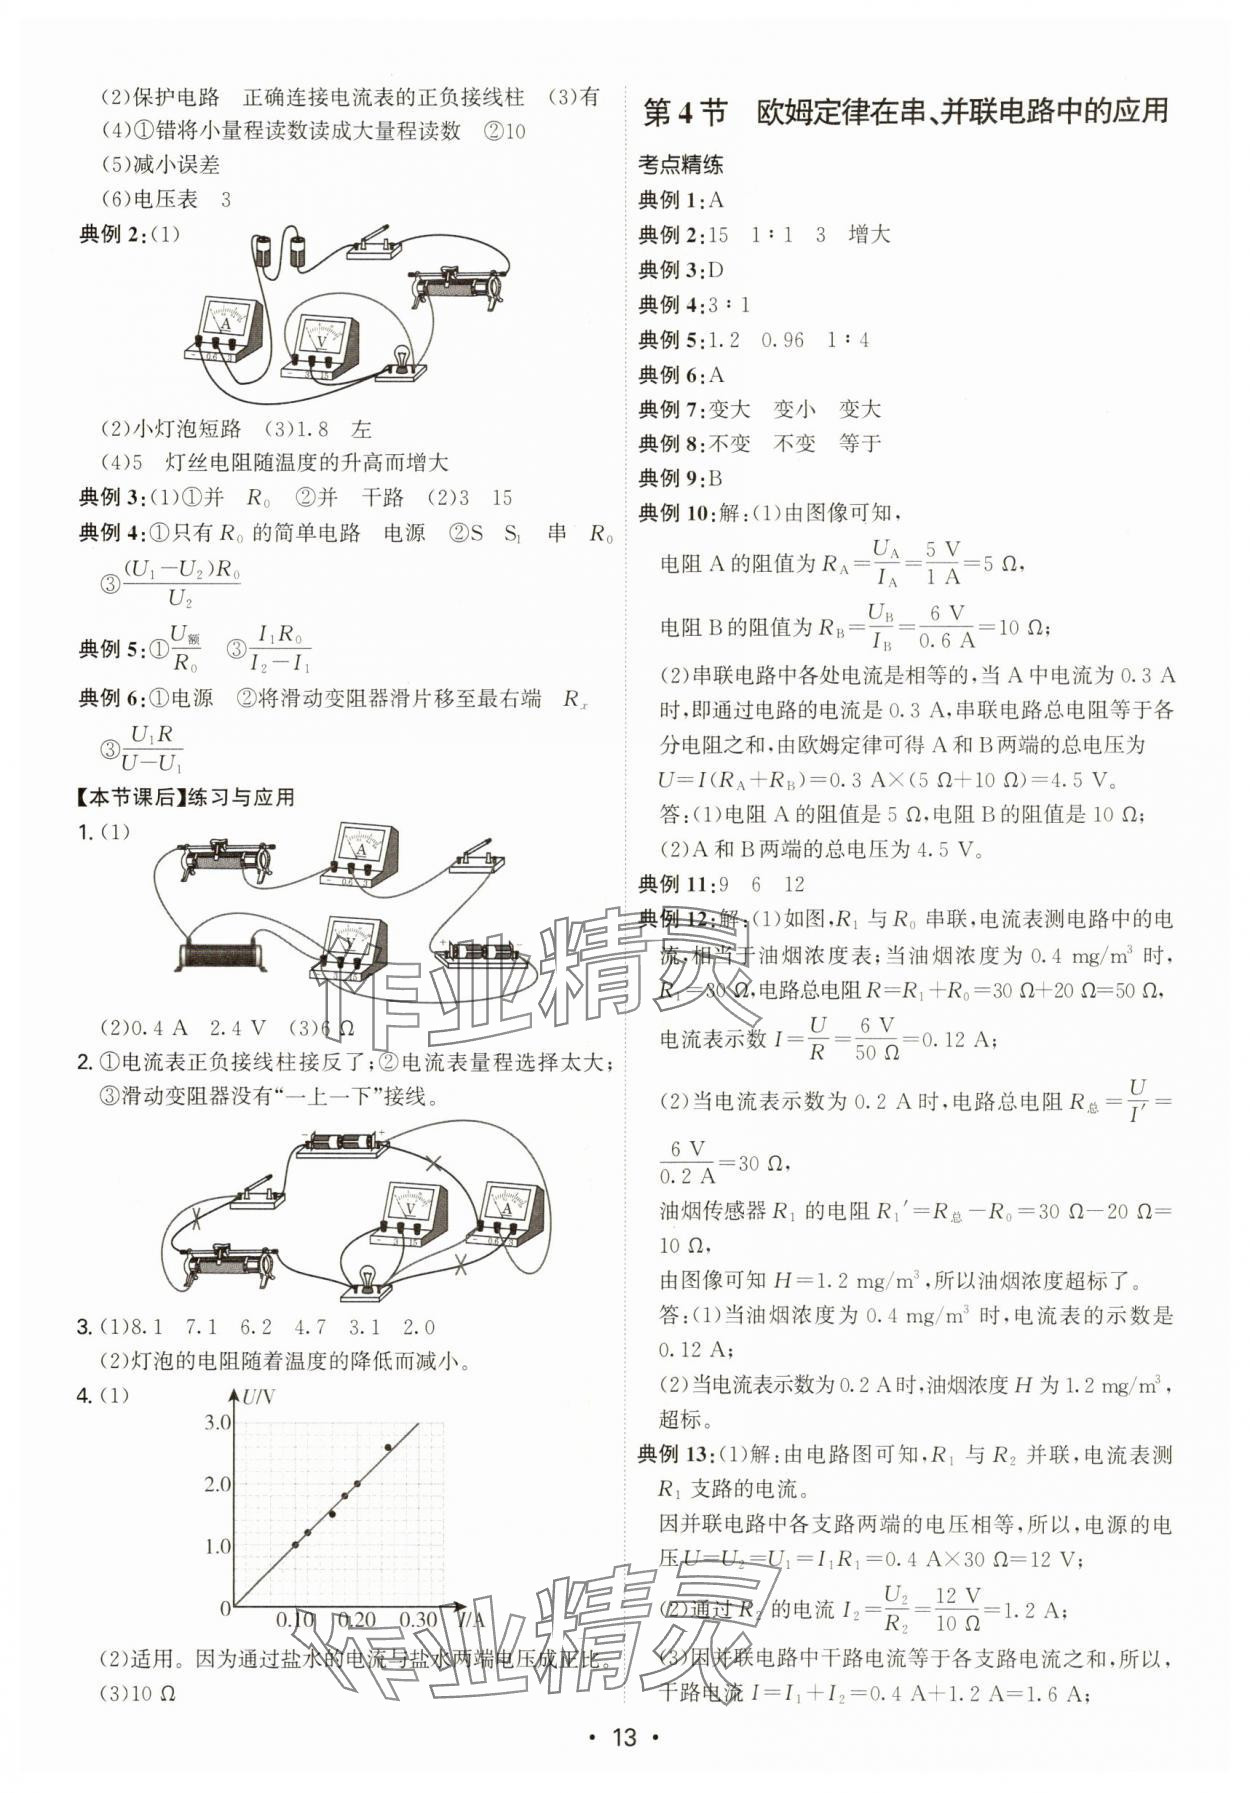 (2)保护电路　正确连接电流表的正负接线柱　(3)有
(4)①错将小量程读数读成大量程读数　②10
(5)减小误差
(6)电压表　3
典例 2:(1)
(2)小灯泡短路　(3)1.8　左
(4)5　灯丝电阻随温度的升高而增大
典例 3:(1)①并　R₀　②并　干路　(2)3　15
典例 4:①只有 R₀ 的简单电路　电源　②S　S₁　串　R₀
③(U₁−U₂)R₀/U₂
典例 5:①U额/R₀　③I₁R₀/(I₂−I₁)
典例 6:①电源　②将滑动变阻器滑片移至最右端　Rₓ
③U₁R/(U−U₁)
【本节课后】练习与应用
1. (1)
(2)0.4 A　2.4 V　(3)6 Ω
2. ①电流表正负接线柱接反了;②电流表量程选择太大;
③滑动变阻器没有“一上一下”接线。
3. (1)8.1　7.1　6.2　4.7　3.1　2.0
(2)灯泡的电阻随着温度的降低而减小。
4. (1)
U/V
3.0
2.0
1.0
0　0.10　0.20　0.30　I/A
(2)适用。因为通过盐水的电流与盐水两端电压成正比。
(3)10 Ω
第 4 节　欧姆定律在串、并联电路中的应用
考点精练
典例 1:A
典例 2:15　1∶1　3　增大
典例 3:D
典例 4:3∶1
典例 5:1.2　0.96　1∶4
典例 6:A
典例 7:变大　变小　变大
典例 8:不变　不变　等于
典例 9:B
典例 10:解:(1)由图像可知,
电阻 A 的阻值为 R_A=U_A/I_A=5 V/1 A=5 Ω,
电阻 B 的阻值为 R_B=U_B/I_B=6 V/0.6 A=10 Ω;
(2)串联电路中各处电流是相等的,当 A 中电流为 0.3 A
时,即通过电路的电流是 0.3 A,串联电路总电阻等于各
分电阻之和,由欧姆定律可得 A 和 B 两端的总电压为
U=I(R_A+R_B)=0.3 A×(5 Ω+10 Ω)=4.5 V。
答:(1)电阻 A 的阻值是 5 Ω,电阻 B 的阻值是 10 Ω;
(2)A 和 B 两端的总电压为 4.5 V。
典例 11:9　6　12
典例 12:解:(1)如图,R₁ 与 R₀ 串联,电流表测电路中的电
流,相当于油烟浓度表;当油烟浓度为 0.4 mg/m³ 时,
R₁=30 Ω,电路总电阻 R=R₁+R₀=30 Ω+20 Ω=50 Ω,
电流表示数 I=U/R=6 V/50 Ω=0.12 A;
(2)当电流表示数为 0.2 A 时,电路总电阻 R总=U/I′=
6 V/0.2 A=30 Ω,
油烟传感器 R₁ 的电阻 R₁′=R总−R₀=30 Ω−20 Ω=
10 Ω,
由图像可知 H=1.2 mg/m³,所以油烟浓度超标了。
答:(1)当油烟浓度为 0.4 mg/m³ 时,电流表的示数是
0.12 A;
(2)当电流表示数为 0.2 A 时,油烟浓度 H 为 1.2 mg/m³,
超标。
典例 13:(1)解:由电路图可知,R₁ 与 R₂ 并联,电流表测
R₁ 支路的电流。
因并联电路中各支路两端的电压相等,所以,电源的电
压 U=U₂=U₁=I₁R₁=0.4 A×30 Ω=12 V;
(2)通过 R₂ 的电流 I₂=U₂/R₂=12 V/10 Ω=1.2 A;
(3)因并联电路中干路电流等于各支路电流之和,所以,
干路电流 I=I₁+I₂=0.4 A+1.2 A=1.6 A;
作业精灵
作业精灵
• 13 •